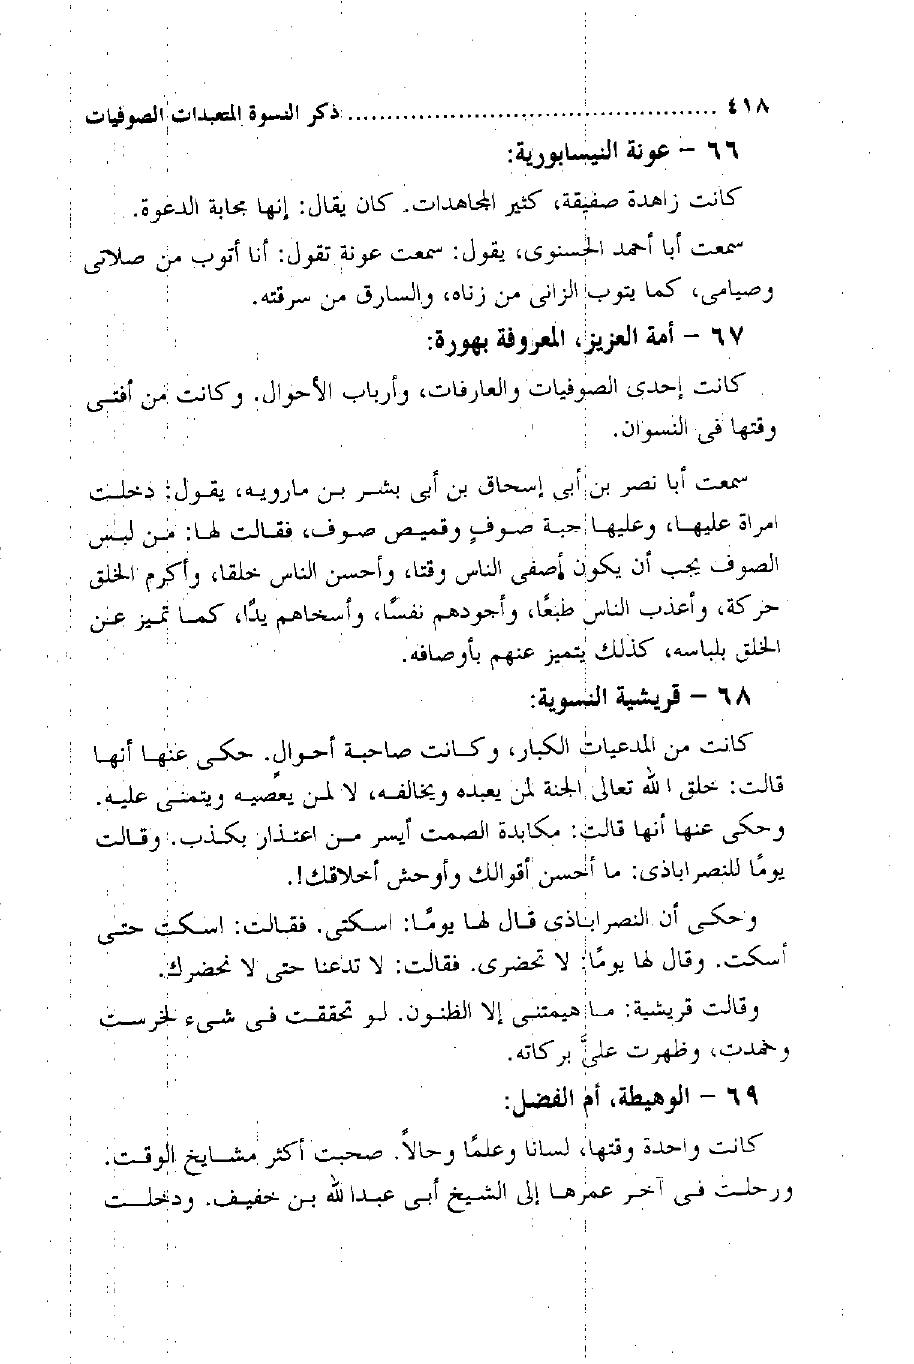 ٤١٨ ............................................... ذكر النسوة المتعبدات الصوفيات
٦٦ - عونة النيسابورية:
كانت زاهدة صفيقة، كثير المجاهدات. كان يقال: إنها مجابة الدعوة.
سمعت أبا أحمد الحسنوى، يقول: سمعت عونة تقول: أنا أتوب من صلاتى
وصيامى، كما يتوب الزانى من زناه، والسارق من سرقته.
٦٧ - أمة العزيز، المعروفة بهورة:
كانت إحدى الصوفيات والعارفات، وأرباب الأحوال. وكانت من أفتى
وقتها فى النسوان.
سمعت أبا نصر بن أبى إسحاق بن أبى بشر بن مارويه، يقول: دخلت
امراة عليها، وعليها جبة صوفٍ وقميص صوف، فقالت لها: من لبس
الصوف يجب أن يكون أصفى الناس وقتا، وأحسن الناس خلقا، وأكرم الخلق
حركة، وأعذب الناس طبعًا، وأجودهم نفسًا، وأسخاهم يدًا، كما تميز عن
الخلق بلباسه، كذلك يتميز عنهم بأوصافه.
٦٨ - قريشية النسوية:
كانت من المدعيات الكبار، وكانت صاحبة أحوالٍ. حكى عنها أنها
قالت: خلق الله تعالى الجنة لمن يعبده ويخالفه، لا لمن يعصيه ويتمنى عليه.
وحكى عنها أنها قالت: مكابدة الصمت أيسر من اعتذار بكذب. وقالت
يومًا للنصراباذى: ما أحسن أقوالك وأوحش أخلاقك!.
وحكى أن النصراباذى قال لها يومًا: اسكتى. فقالت: اسكت حتى
أسكت. وقال لها يومًا: لا تحضرى. فقالت: لا تدعنا حتى لا نحضرك.
وقالت قريشية: ما هيمتنى إلا الظنون. لو تحققت فى شىء لخرست
وخمدت، وظهرت علىَّ بركاته.
٦٩ - الوهيطة، أم الفضل:
كانت واحدة وقتها، لسانا وعلمًا وحالاً. صحبت أكثر مشايخ الوقت.
ورحلت فى آخر عمرها إلى الشيخ أبى عبدالله بن خفيف. ودخلت